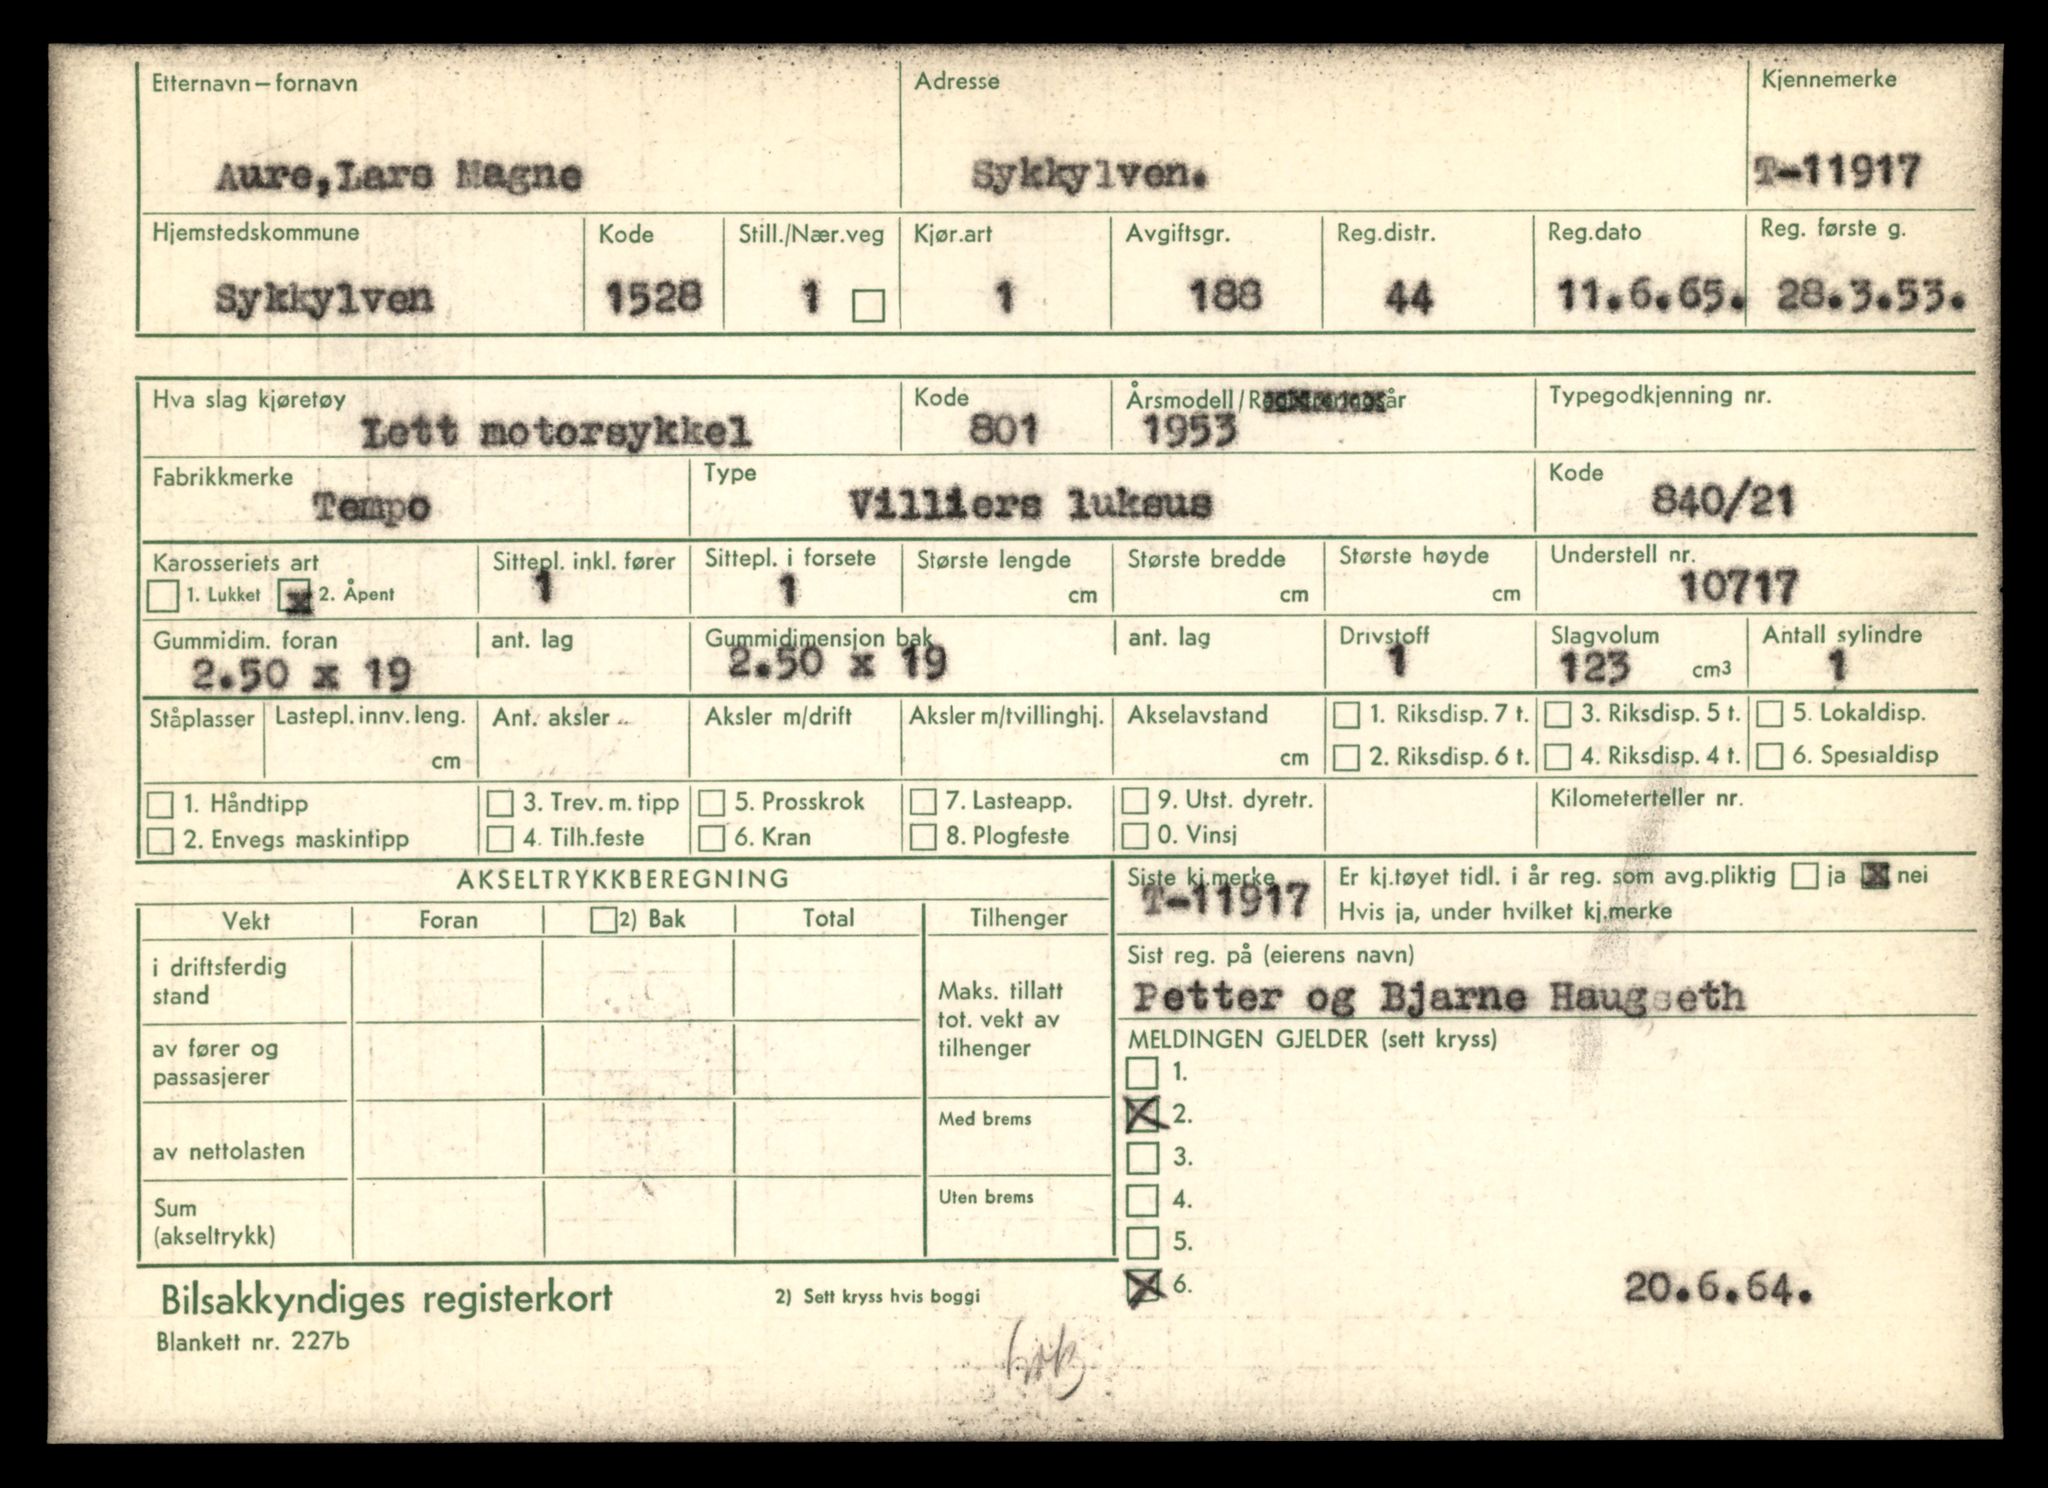 Etternavn – fornavn Adresse Kjennemerke
Aure, Lars Magne Sykkylven. T-11917
Hjemstedskommune Kode Still./Nær.veg Kjør.art Avgiftsgr. Reg.distr. Reg.dato Reg. første g.
Sykkylven 1528 1 1 188 44 11.6.65. 28.3.53.
Hva slag kjøretøy Kode Årsmodell/Registreringsår Typegodkjenning nr.
Lett motorsykkel 801 1953
Fabrikkmerke Type Kode
Tempo Villiers luksus 840/21
Karosseriets art Sittepl. inkl. fører Sittepl. i forsete Største lengde Største bredde Største høyde Understell nr.
1. Lukket x 2. Åpent 1 1 cm cm cm 10717
Gummidim. foran ant. lag Gummidimensjon bak ant. lag Drivstoff Slagvolum Antall sylindre
2.50 x 19 2.50 x 19 1 123 cm3 1
Ståplasser Lastepl. innv. leng. Ant. aksler Aksler m/drift Aksler m/tvillinghj. Akselavstand 1. Riksdisp. 7 t. 3. Riksdisp. 5 t. 5. Lokaldisp.
cm cm 2. Riksdisp. 6 t. 4. Riksdisp. 4 t. 6. Spesialdisp
1. Håndtipp 3. Trev. m. tipp 5. Prosskrok 7. Lasteapp. 9. Utst. dyretr. Kilometerteller nr.
2. Envegs maskintipp 4. Tilh.feste 6. Kran 8. Plogfeste 0. Vinsj
AKSELTRYKKBEREGNING
Vekt Foran 2) Bak Total Tilhenger
i driftsferdig
stand
av fører og
passasjerer
av nettolasten
Sum
(akseltrykk)
Maks. tillatt
tot. vekt av
tilhenger
Med brems
Uten brems
Siste kj.merke Er kj.tøyet tidl. i år reg. som avg.pliktig ja x nei
T-11917 Hvis ja, under hvilket kj.merke
Sist reg. på (eierens navn)
Petter og Bjarne Haugseth
MELDINGEN GJELDER (sett kryss)
1.
X 2.
3.
4.
5.
X 6. 20.6.64.
Bilsakkyndiges registerkort 2) Sett kryss hvis boggi
Blankett nr. 227b